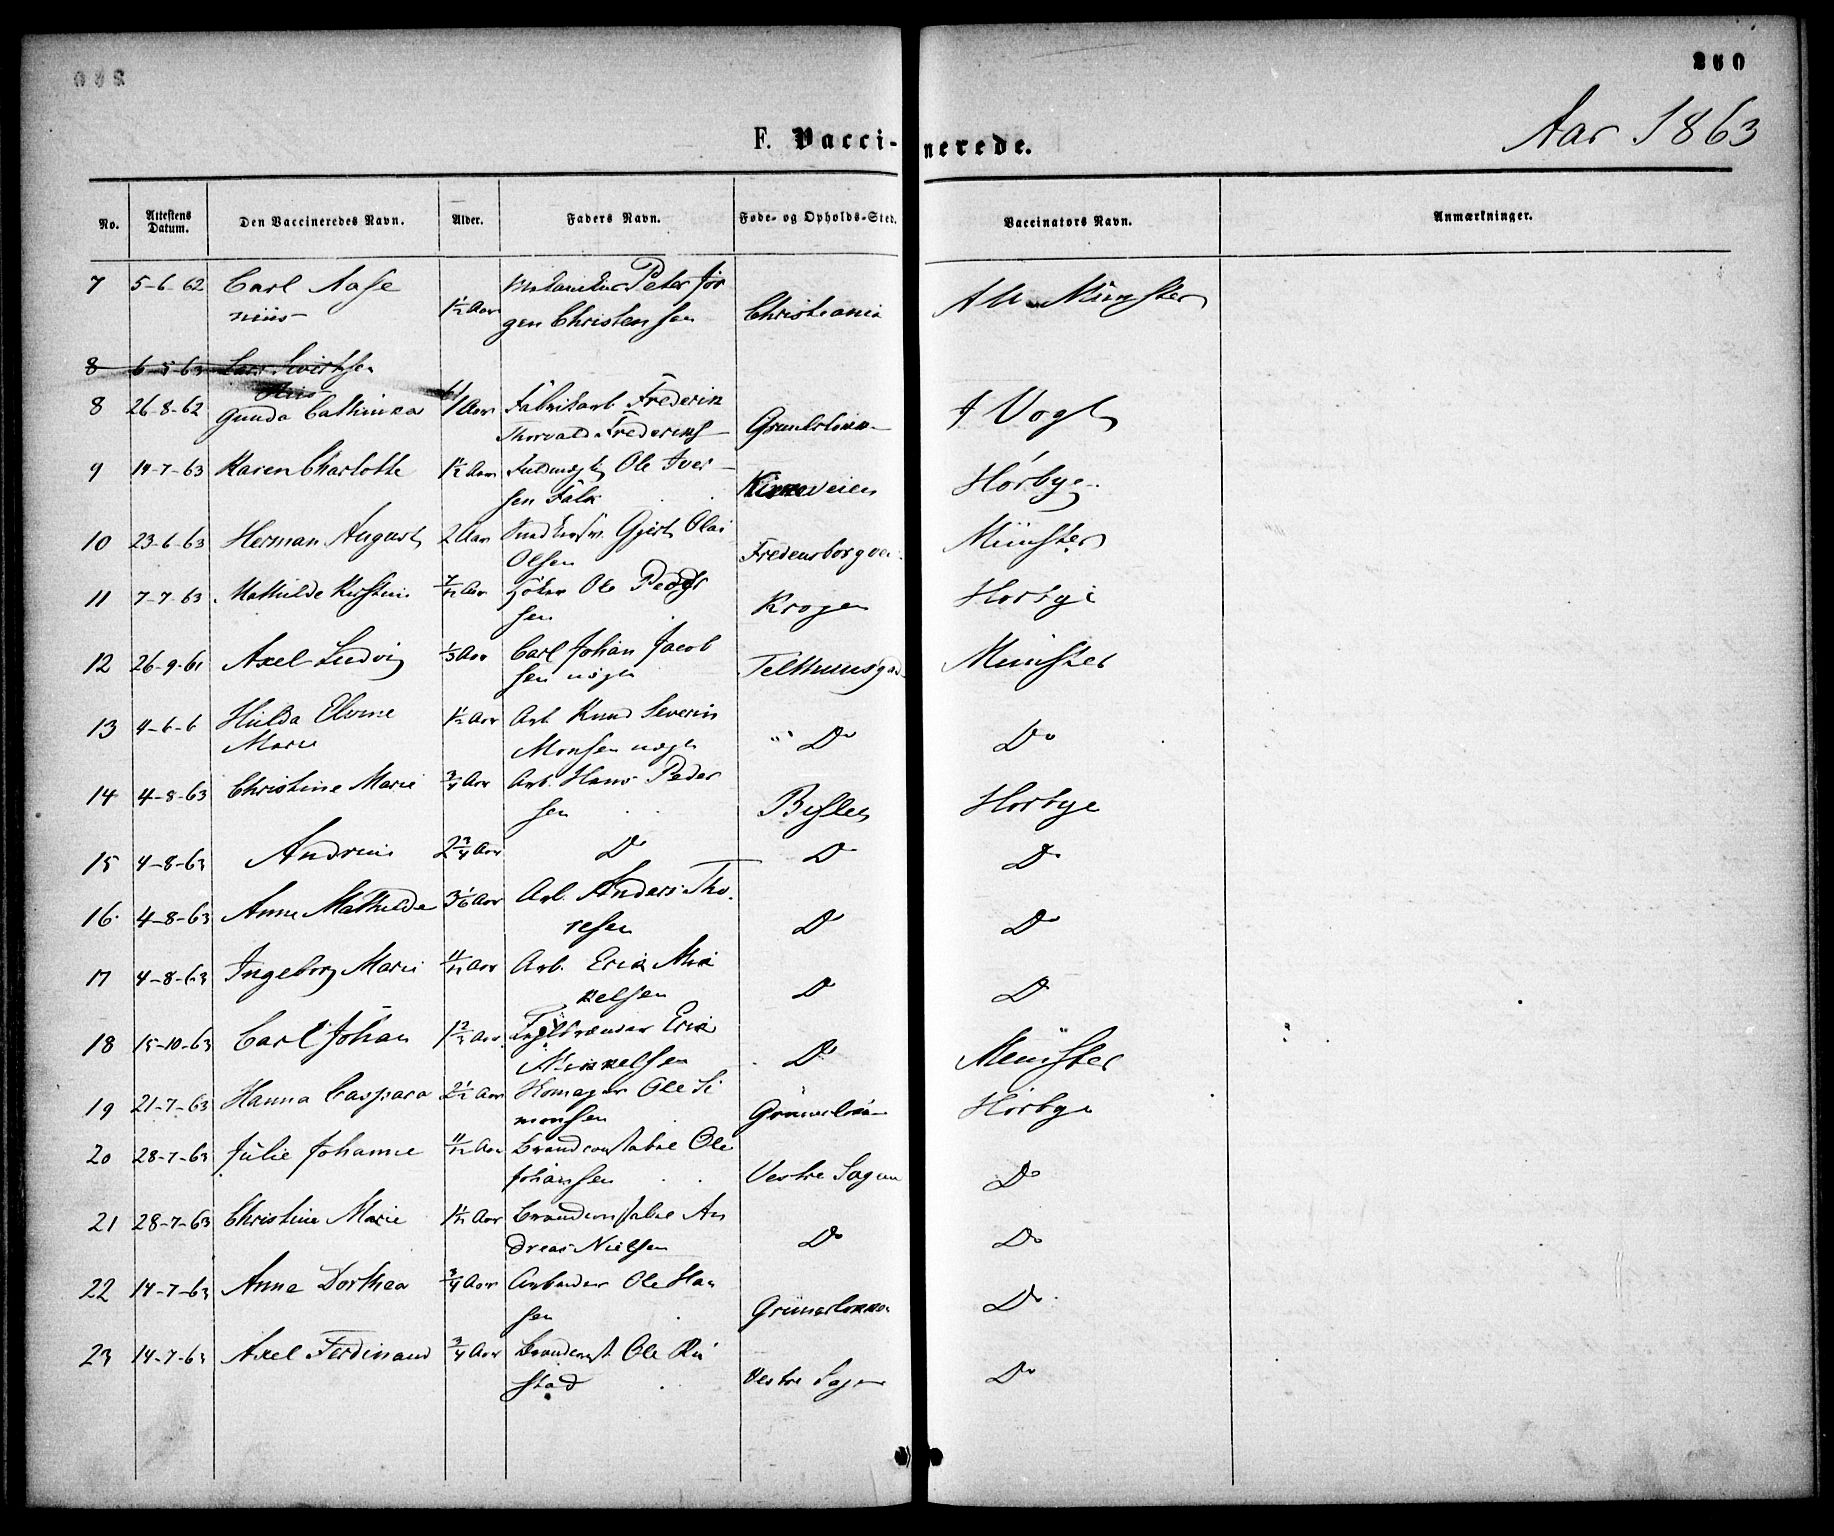 260
Aar 1863
F. Vacci- nerede.
No. Attestens Datum. Den Vaccineredes Navn. Alder. Faders Navn. Føde- og Opholds-Sted. Vaccinators Navn. Anmærkninger.
7 5-6-62 Carl Aase Peter Jör
1 1/2 Aar gen Christensen Christiania Münster
8 6-5-63 Sivertsen
8 26-8-62 Gunda Cathinka 1 Aar Fabrikarb. Frederik
Thorvald Vogt
9 14-7-63 Karen Charlotte 1 1/2 Aar Fuldmægtig Ole Iver
sen Falk Kirkeveien Hörbye
10 23-6-63 Herman August 2 Aar Gjert Olai
Olsen Fredensborgvei Münster
11 7-7-63 Mathilde Kirstine 7/12 Aar Ole Peder
sen Krogen Horbye
12 26-9-61 Axel Ludvig 1/3 Aar Carl Johan Jacob
sen Telthuusgad Münster
13 4-6-6 Hulda
Marie 1 1/2 Aar Arb. Knud Severin
Monsen Do Do
14 4-8-63 Christine Marie 3/4 Aar Arb. Hans Peder
sen Bislet Horbye
15 4-8-63 Andrine 2 3/4 Aar D D D
16 4-8-63 Anne Mathilde 3 1/6 Aar Arb. Anders Tho
resen D D
17 4-8-63 Ingeborg Marie 11/12 Aar Arb. Erik Mik
kelsen D D
18 15-10-63 Carl Johan Aar Erik
Mikkelsen D Münster
19 21-7-63 Hanna Caspara 2 1/2 Aar Skomager Ole Si
monsen Grünerløkka Hörbye
20 28-7-63 Julie Johanne 11/12 Aar Brandconstabel Ole
Johansen Vestre Sagene Do
21 28-7-63 Christine Marie Aar Brandconstabel An
dreas Nielsen Do Do
22 14-7-63 Anne Dorthea 3/4 Aar Arbeider Ole Han
sen Grünerløkka Do
23 14-7-63 Axel Ferdinand 3/4 Aar Brandconst Ole
stad Vestre Sagene Do